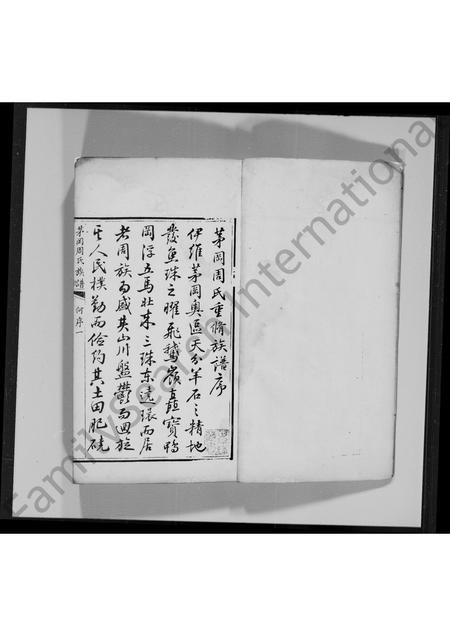 茅岡周氏重脩族譜序
伊維茅岡奧區天分羊石之精地
發魚珠之曜飛鵝嶺矗寶鴨
岡浮五馬北來三珠東遶環而居
者周族而盛其山川盤鬱而迴旋
其人民樸勤而儉約其土田肥磽
茅岡周氏族譜
何序一
FamilySearch International